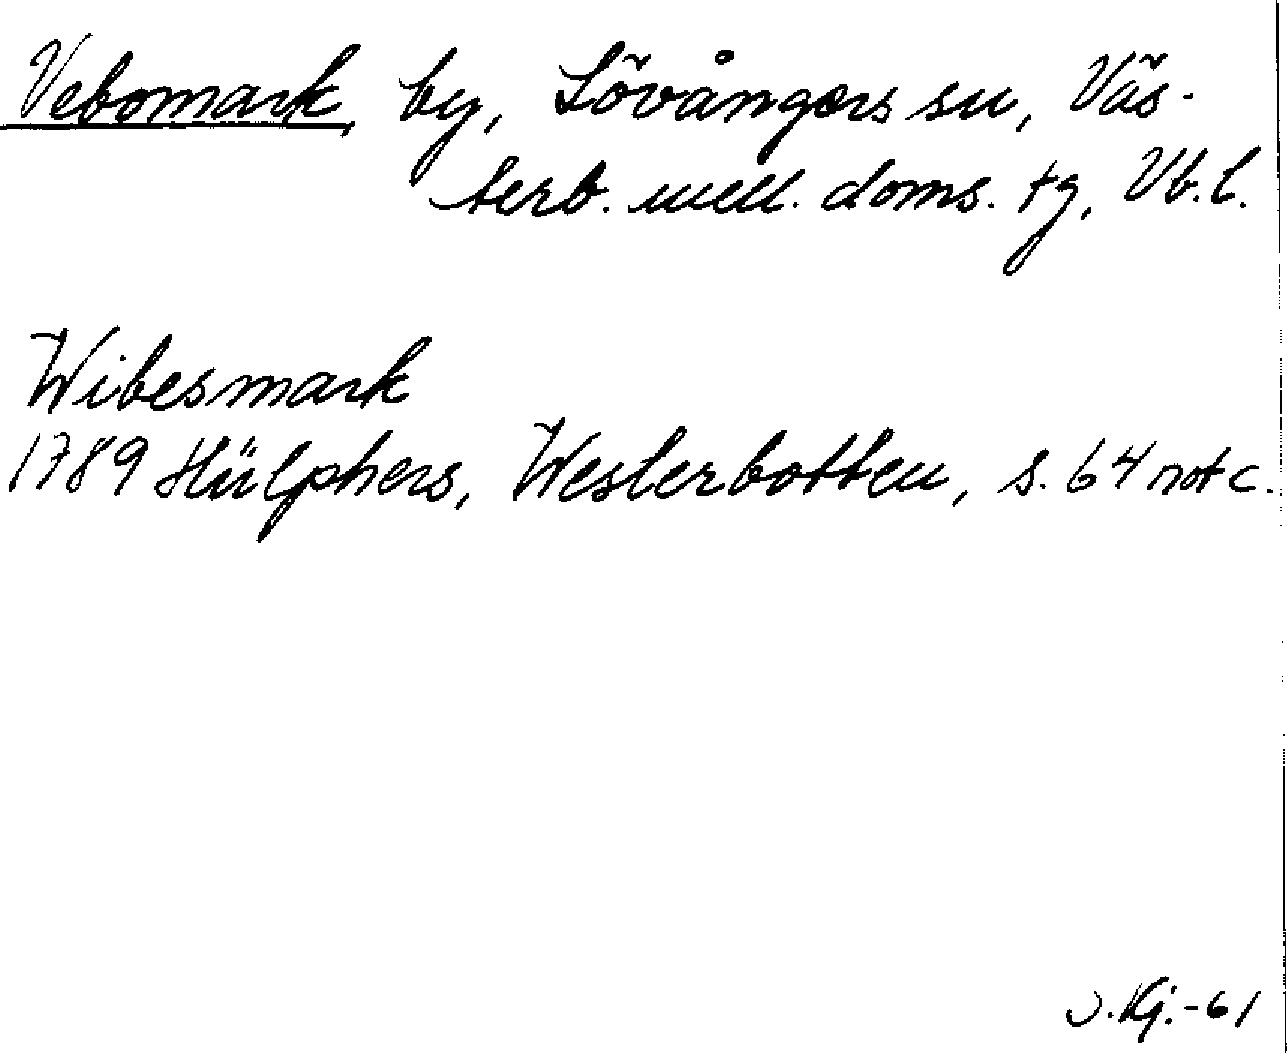 Vebomark, by, Lövångers sn, Väs-
terb. mell. doms. tg, Vb.l.
Wibesmark
1789 Hülphers, Westerbotten, s. 64 not c.
J. Kj. -61